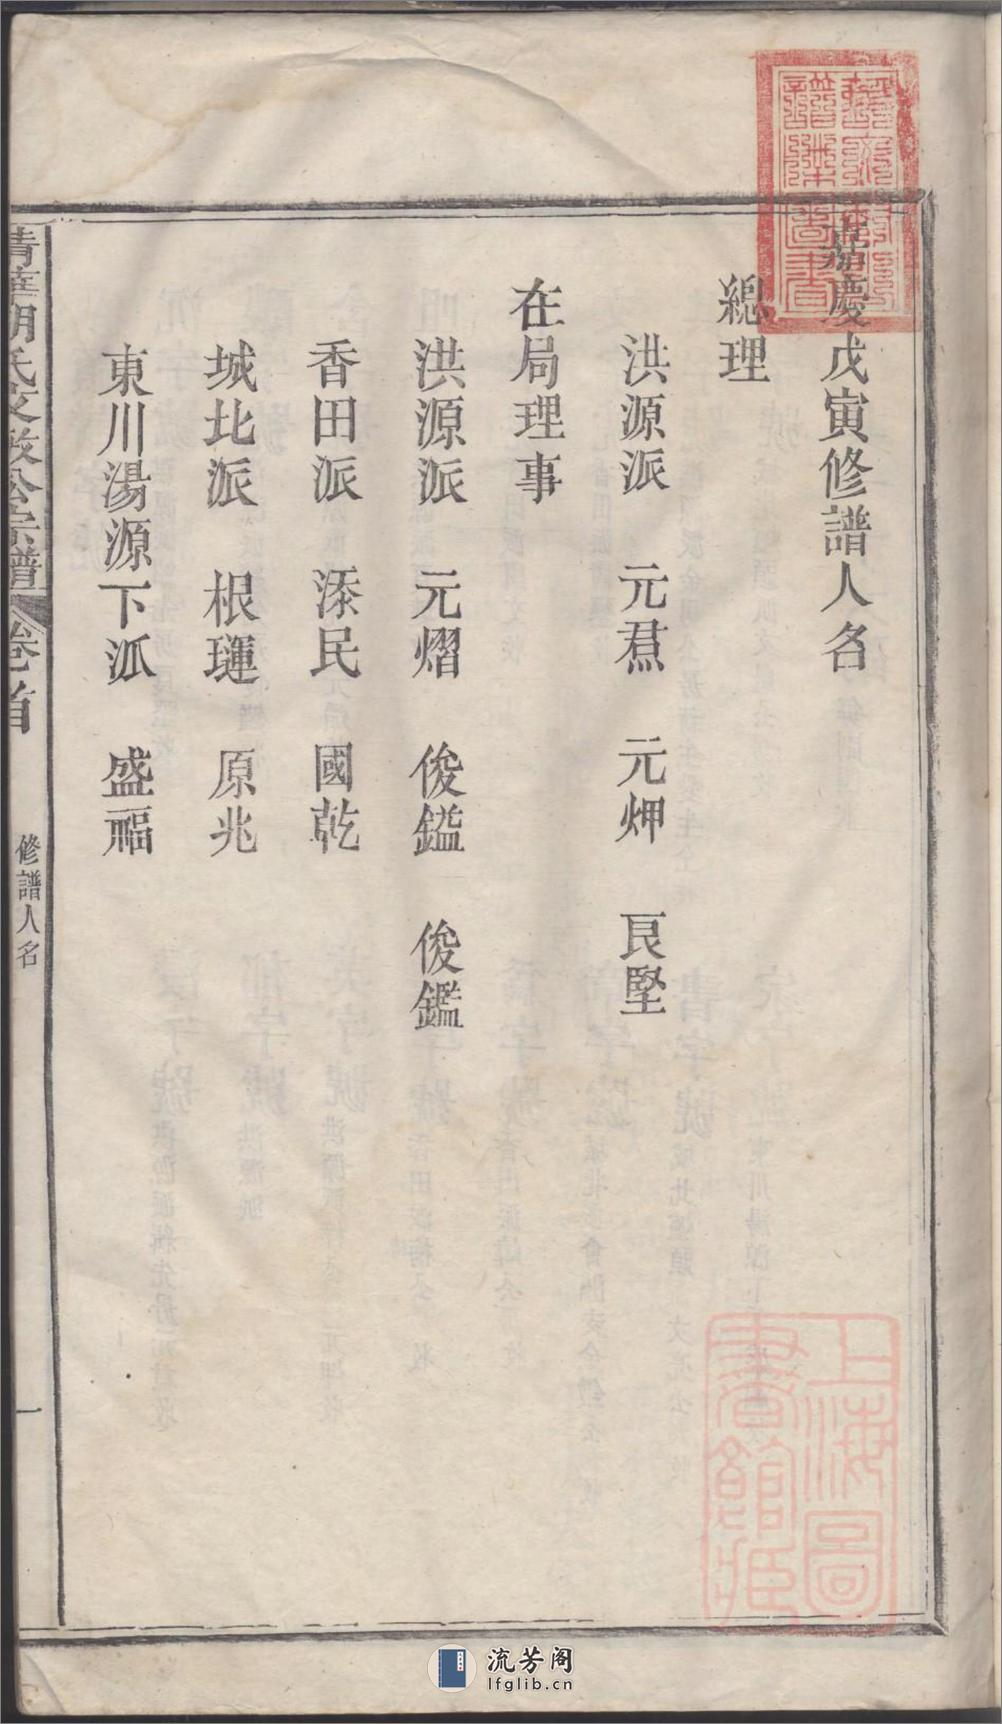 嘉慶戊寅修譜人名
總理
洪源派　元焄　元炠　良堅
在局理事
洪源派　元熠　俊鎰　俊鑑
香田派　添民　國乾
城北派　根璉　原兆
東川湯源下派　盛福
清華胡氏文敏公宗譜　卷首　修譜人名　一
上海圖書館藏
流芳阁
lfglib.cn